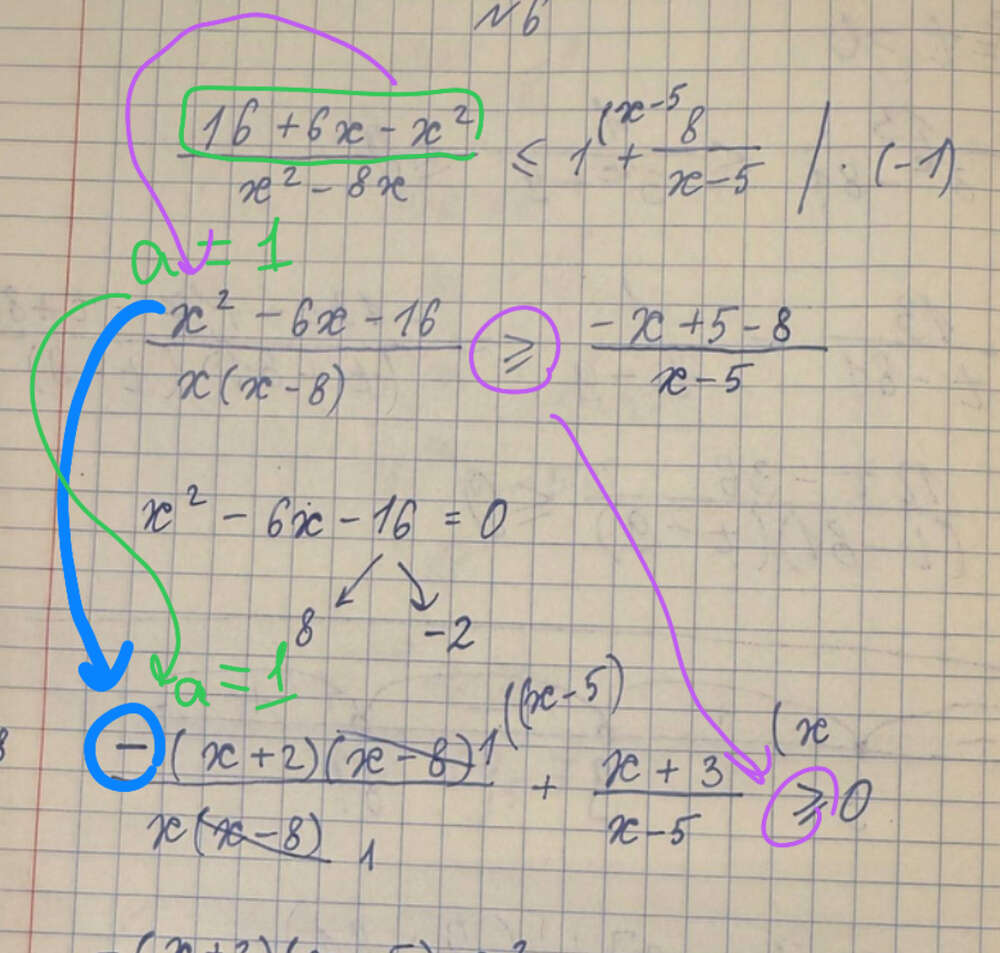 №6
(16 + 6x - x²)/(x² - 8x) ≤ 1^(x-5 + 8/(x-5) / · (-1)
a = 1
(x² - 6x - 16)/(x(x - 8)) ≥ (-x + 5 - 8)/(x - 5)
x² - 6x - 16 = 0
8 -2
a = 1
(-(x + 2)(x - 8) 1^((x-5))/(x(x - 8) 1) + (x + 3)/(x - 5)^(x ≥ 0